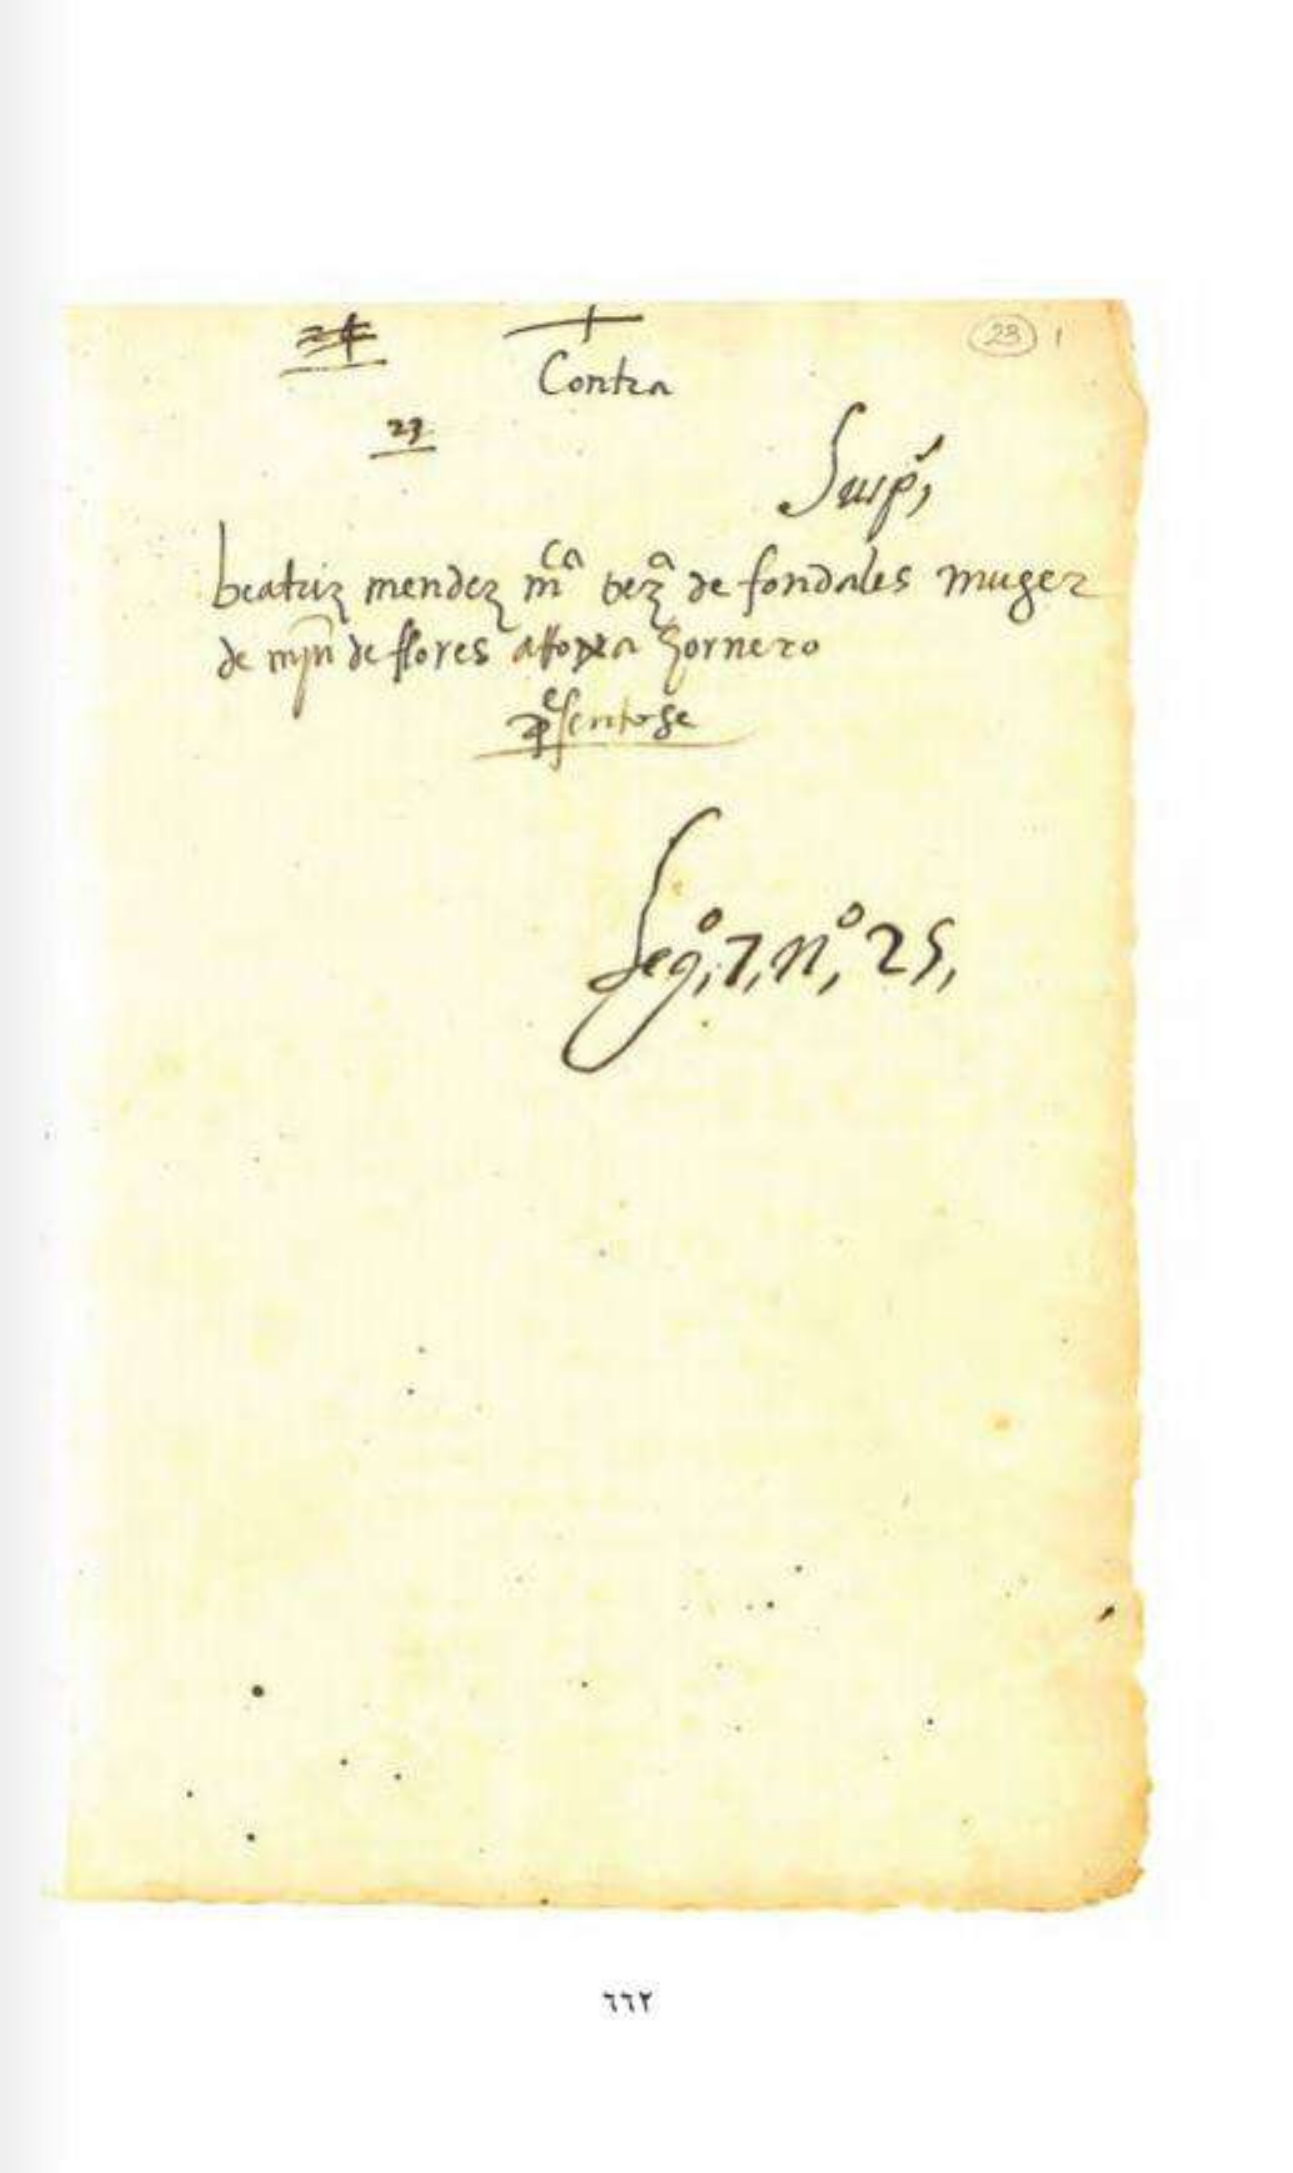 23 1
+
Contra
23
Susp,
beatriz mendez mca veza de fondales muger
de mrn de flores hornero
presentose
Lego, 7, no, 25,
٦٦٢